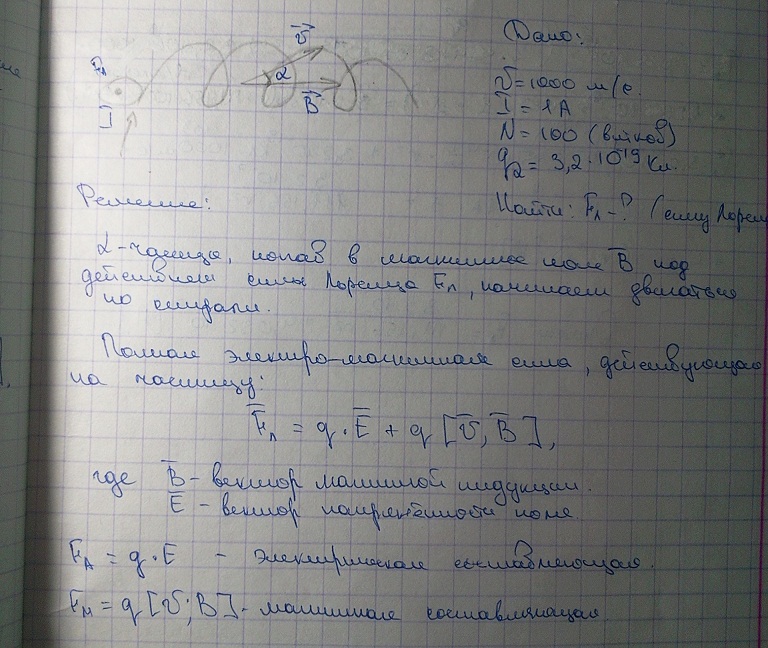 Дано:
v̄ = 1000 м/с.
I = 1 А
N = 100 (витков)
q₂ = 3,2·10¹⁹ Кл.
Найти: Fл - ? (силу Лорен
Fл
I
v̄
α
B̄
Решение:
α-частица, попав в магнитное поле B̄ под
действием силы Лоренца Fл, начинает двигаться
по спирали.
Полная электро-магнитная сила, действующая
на частицу:
F̄л = q·Ē + q[v̄, B̄],
где B̄ - вектор магнитной индукции.
Ē - вектор напряжённости поля
FД = q·E - электрическая составляющая.
FМ = q[v̄; B] - магнитная составляющая